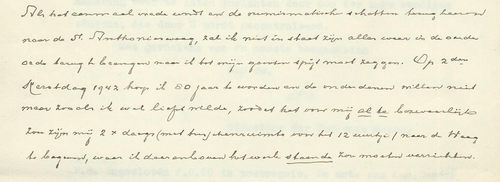 Als het eenmaal vrede wordt en de numismatische schatten terugkeeren
naar de St. Anthoniesweg, zal ik niet in staat zijn alles weer in de oude
orde terug te brengen naar ik tot mijn grooten spijt moet zeggen. Op 2den
Kerstdag 1942 hoop ik 80 jaar te worden en de onderdanen willen niet
meer zooals ik wel liefst wilde, zoodat het voor mij al te bezwaarlijk
zou zijn mij 2 x daags (met bus) tusschenruimte voor het 12 uurtje / naar de Waag
te begeven, waar ik daarenboven het werk staande zou moeten verrichten.